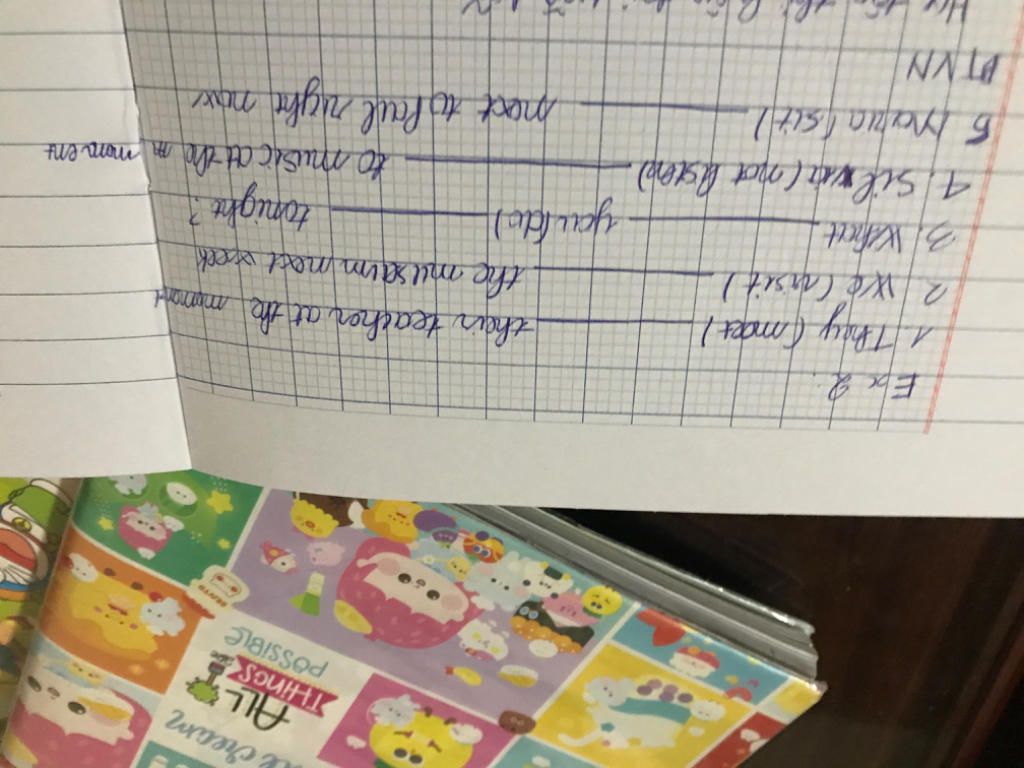 Ex 2.
1. They (meet) ___ their teacher at the moment
2 We (visit) ___ the museum next week
3. What ___ you (do) ___ tonight?
4. (not listen) ___ to music at the m moment
5 Maria (sit) ___ next to Paul right now
BTVN
ALL
THINGS
POSSIBLE
cream